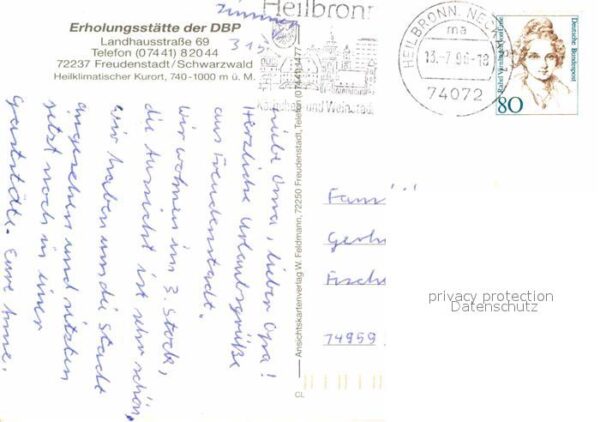 Erholungsstätte der DBP
Landhausstraße 69
Telefon (07441) 82044
72237 Freudenstadt/Schwarzwald
Heilklimatischer Kurort, 740-1000 m ü. M.
Zimmer
315
Liebe Oma, lieber Opa!
Herzliche Urlaubsgrüße
aus Freudenstadt.
Wir wohnen im 3. Stock,
die Aussicht ist sehr schön,
wir haben uns die Stadt
angesehen und sitzen
jetzt noch in einer
Gaststätte. Eure Anne.
Ansichtskartenverlag W. Feldmann, 72250 Freudenstadt, Telefon (07441) 1477
CL
Heilbronn
HEILBRONN, NECKAR
ma
13.-7.96-18
74072
Deutsche Bundespost
Rahel Varnhagen von Ense
80
Fam
Gerh
Fische
74959
privacy protection
Datenschutz